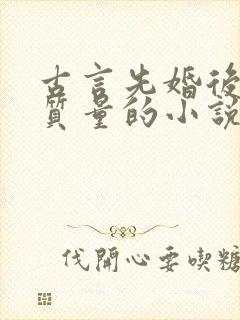 古言先婚後
質量的小說
伐開心要喫糖